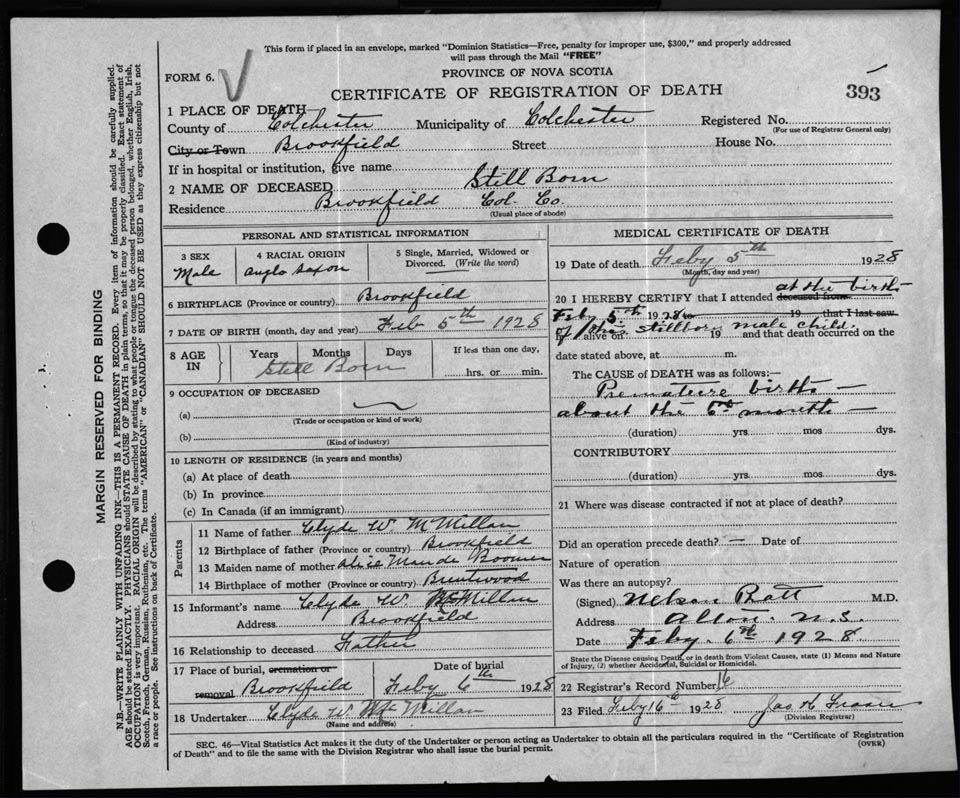 This form if placed in an envelope, marked "Dominion Statistics—Free, penalty for improper use, $300," and properly addressed
will pass through the Mail "FREE"
FORM 6.
PROVINCE OF NOVA SCOTIA
CERTIFICATE OF REGISTRATION OF DEATH
393
1 PLACE OF DEATH
County of Colchester Municipality of Colchester Registered No.
(For use of Registrar General only)
City or Town Brookfield Street House No.
If in hospital or institution, give name
2 NAME OF DECEASED Still Born
Residence Brookfield Col. Co.
(Usual place of abode)
PERSONAL AND STATISTICAL INFORMATION
3 SEX
Male
4 RACIAL ORIGIN
Anglo Saxon
5 Single, Married, Widowed or
Divorced. (Write the word)
6 BIRTHPLACE (Province or country) Brookfield
7 DATE OF BIRTH (month, day and year) Feb 5th 1928
8 AGE IN
Years Months Days
Still Born
If less than one day,
hrs. or min.
9 OCCUPATION OF DECEASED
(a)
(Trade or occupation or kind of work)
(b)
(Kind of industry)
10 LENGTH OF RESIDENCE (in years and months)
(a) At place of death
(b) In province
(c) In Canada (if an immigrant)
Parents
11 Name of father Clyde W McMillan
12 Birthplace of father (Province or country) Brookfield
13 Maiden name of mother Alice Maude Boomer
14 Birthplace of mother (Province or country) Brentwood
15 Informant's name Clyde W McMillan
Address Brookfield
16 Relationship to deceased Father
17 Place of burial, cremation or
removal Brookfield
Date of burial
Feby 6th 1928
18 Undertaker Clyde W McMillan
(Name and address)
MEDICAL CERTIFICATE OF DEATH
19 Date of death Feby 5th 1928
(Month, day and year)
20 I HEREBY CERTIFY that I attended deceased from at the birth
Feby 5th 1928 to 19 that I last saw
of this stillborn male child.
alive on 19 and that death occurred on the
date stated above, at m.
The CAUSE of DEATH was as follows:—
Premature birth —
about the 6th month —
(duration) yrs. mos dys.
CONTRIBUTORY
(duration) yrs. mos. dys.
21 Where was disease contracted if not at place of death?
Did an operation precede death? — Date of
Nature of operation
Was there an autopsy?
(Signed) Nelson Pratt M.D.
Address Alton. N.S.
Date Feby. 6th 1928
State the Disease causing Death, or in death from Violent Causes, state (1) Means and Nature
of Injury, (2) whether Accidental, Suicidal or Homicidal.
22 Registrar's Record Number 16
23 Filed Feby 16th 1928 Jas K Fraser
(Division Registrar)
SEC. 46—Vital Statistics Act makes it the duty of the Undertaker or person acting as Undertaker to obtain all the particulars required in the "Certificate of Registration
of Death" and to file the same with the Division Registrar who shall issue the burial permit.
(OVER)
MARGIN RESERVED FOR BINDING
N.B.—WRITE PLAINLY WITH UNFADING INK—THIS IS A PERMANENT RECORD. Every item of information should be carefully supplied.
AGE should be stated EXACTLY. PHYSICIANS should STATE CAUSE OF DEATH in plain terms, so that it may be properly classified. Exact statement of
OCCUPATION is very important. RACIAL ORIGIN will be described by stating to what people or tongue the deceased person belonged, whether English, Irish,
Scotch, French, German, Russian, Ruthenian, etc. The terms "AMERICAN" or "CANADIAN" SHOULD NOT BE USED as they express citizenship but not
a race or people. See instructions on back of Certificate.